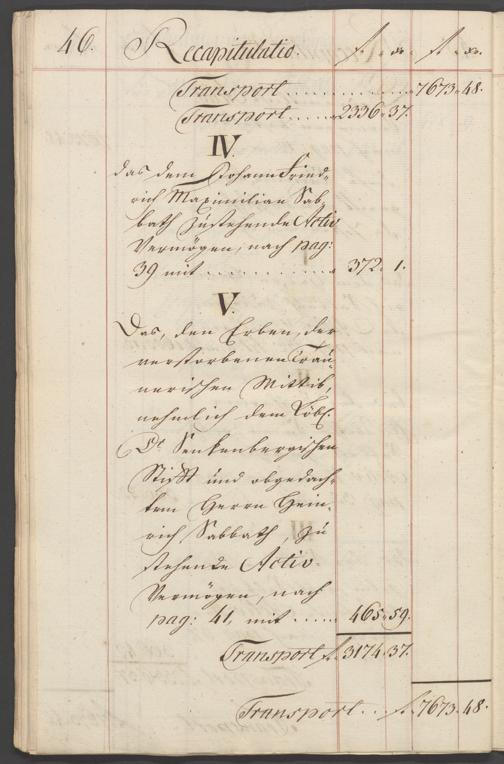 46. Recapitulatio. f. xr. f. xr.
Transport . . . . . . . . . . . . 7673. 48.
Transport . . . . . 2336. 37.
IV.
das dem Johann Fried-
rich Maximilian Sab-
bath zustehende Activ
Vermögen, nach pag:
39 mit . . . . . . . . . . 372. 1.
V.
Das, den Erben, der
verstorbenen
nerischen Wittib,
nehmlich dem Löbl.
Dr. Senkenbergischen
Stifft und obgedach-
tem Herrn Hein-
rich Sabbath, zu
stehende Activ-
Vermögen, nach
pag: 41, mit . . . . . 465. 59.
Transport f. 3174. 37.
Transport . . f. 7673. 48.